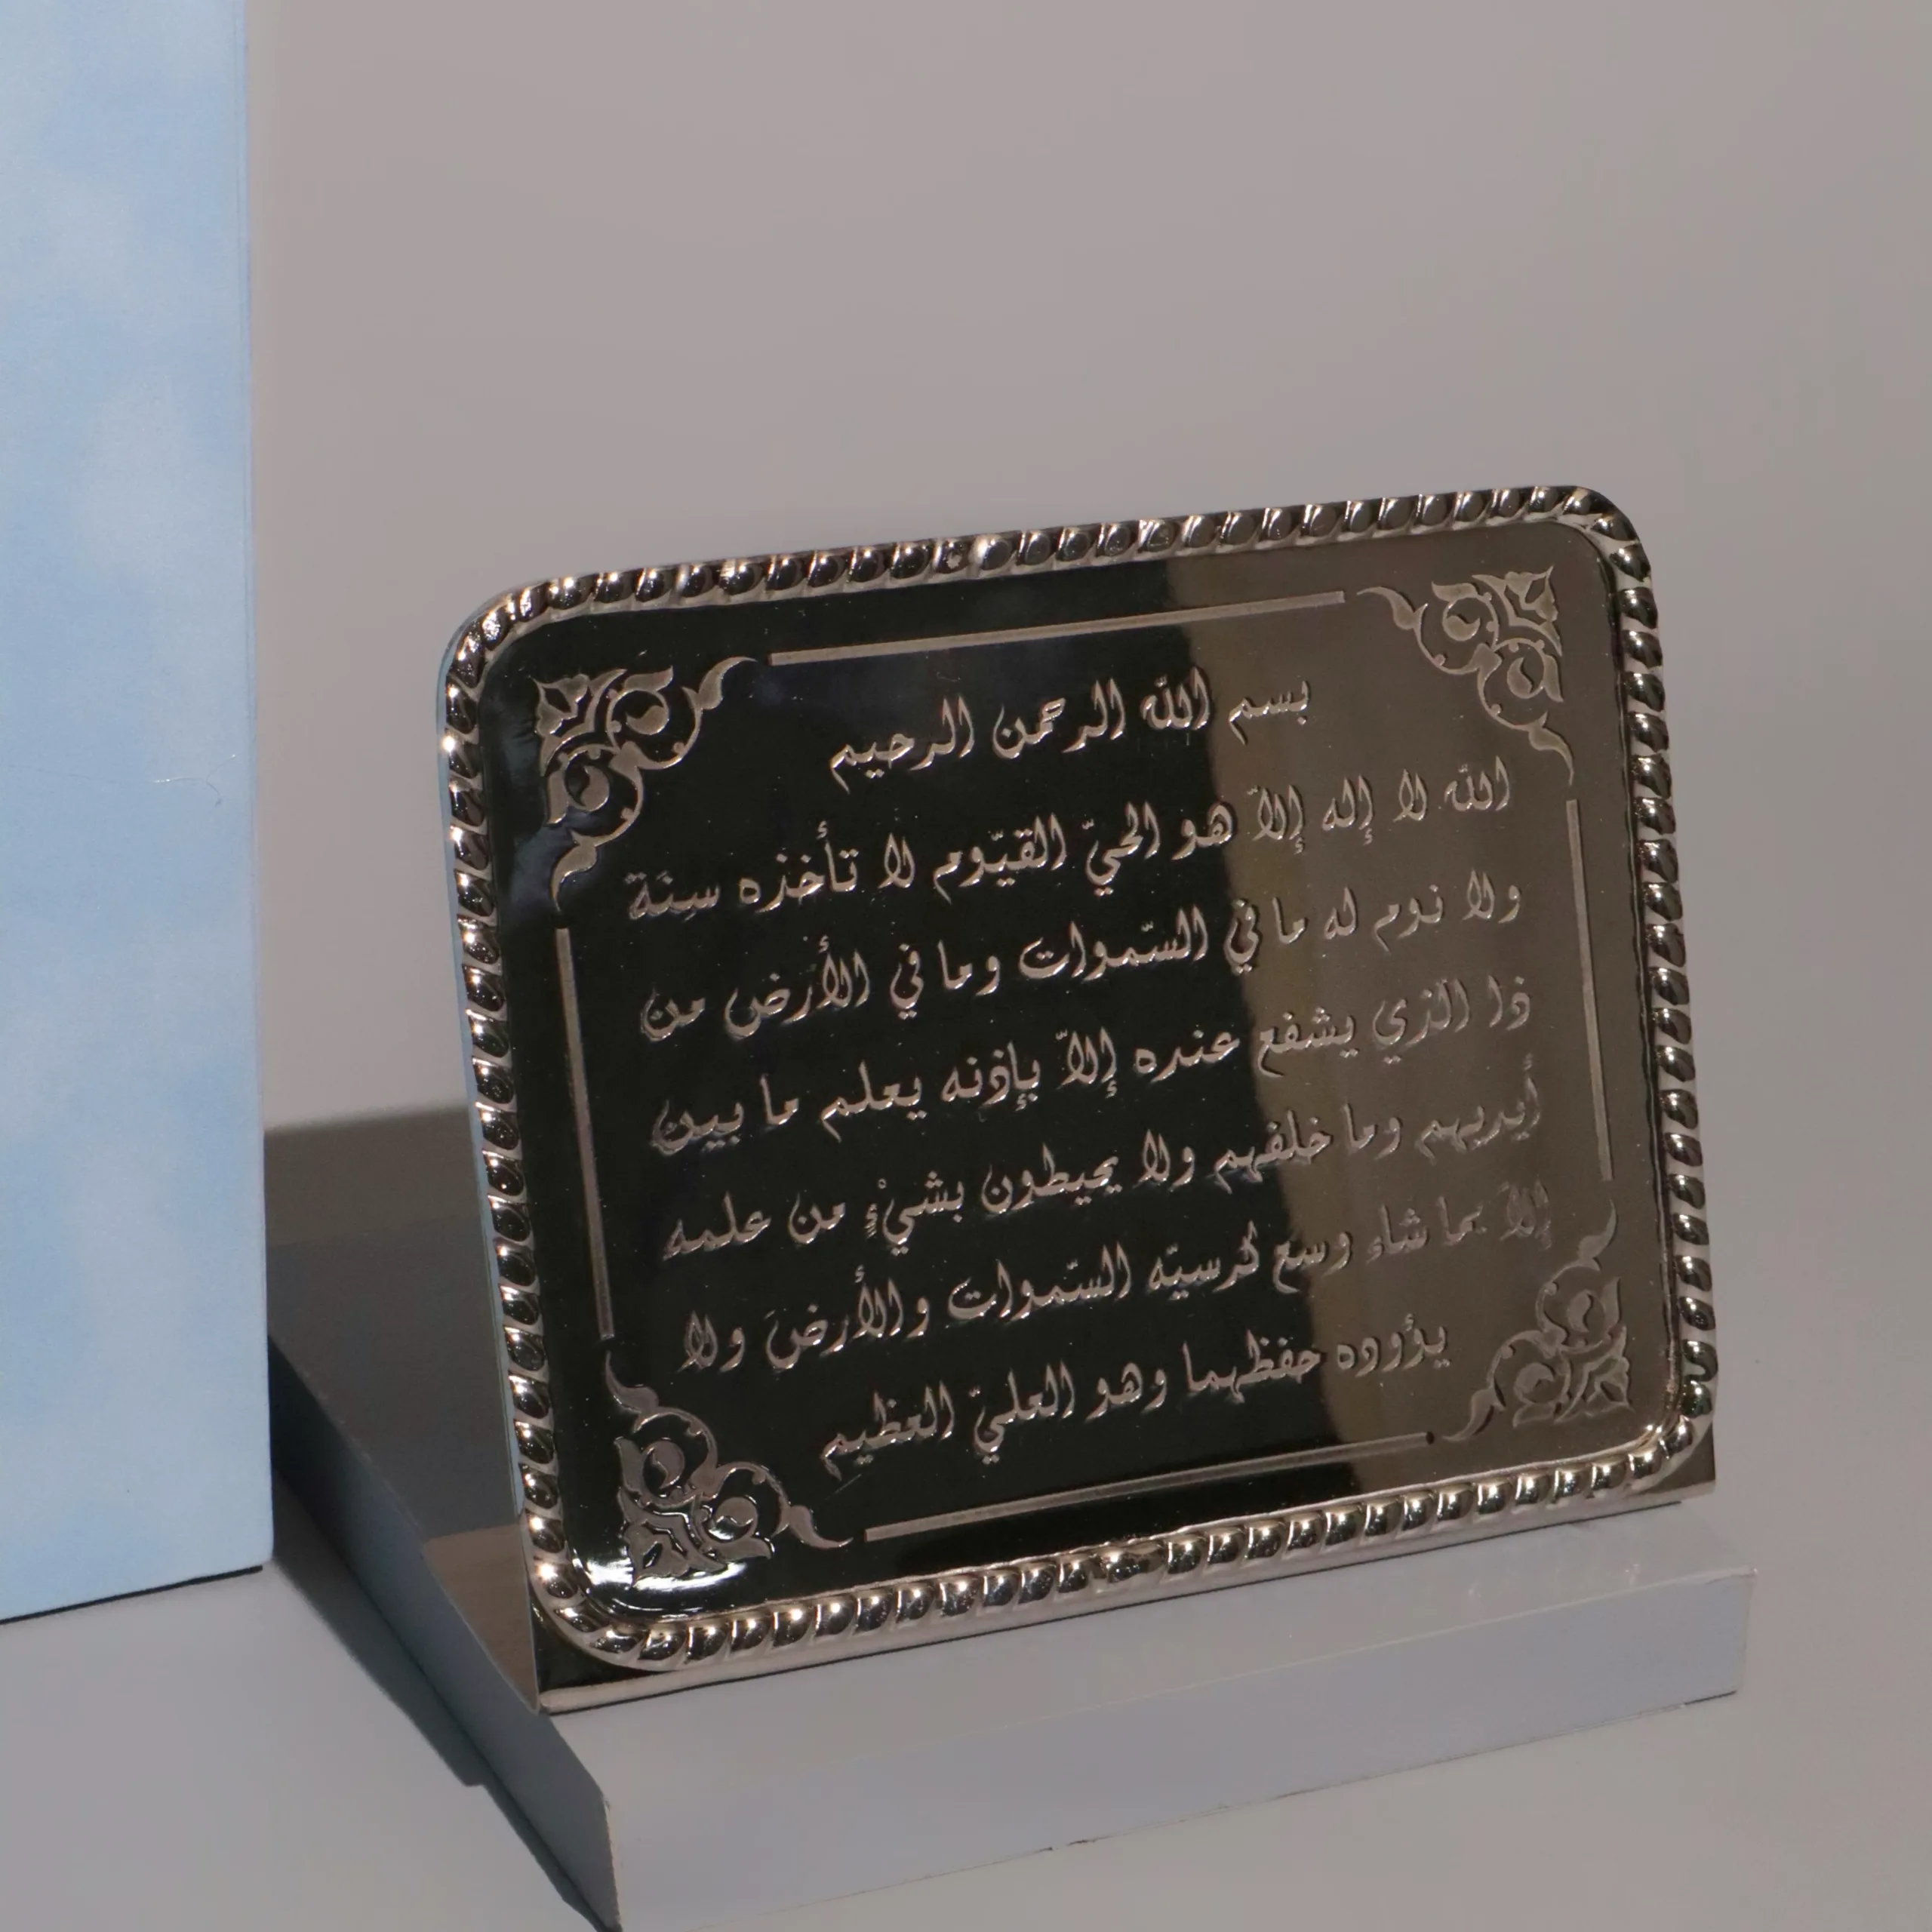 بسم الله الرحمن الرحيم
الله لا إله إلاّ هو الحيّ القيّوم لا تأخذه سِنَة
ولا نوم له ما في السّموات وما في الأرض من
ذا الّذي يشفع عنده إلاّ بإذنه يعلم ما بين
أيديهم وما خلفهم ولا يحيطون بشيْءٍ من علمه
إلاّ بما شاء وسع كرسيّه السّموات والأرضَ ولا
يؤوده حفظهما وهو العليّ العظيم